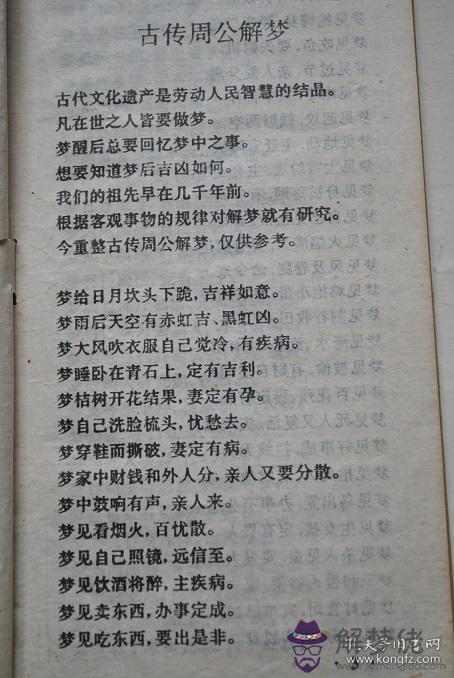 古传周公解梦
古代文化遗产是劳动人民智慧的结晶。
凡在世之人皆要做梦。
梦醒后总要回忆梦中之事。
想要知道梦后吉凶如何。
我们的祖先早在几千年前。
根据客观事物的规律对解梦就有研究。
今重整古传周公解梦，仅供参考。
梦给日月坎头下跪，吉祥如意。
梦雨后天空有赤虹吉、黑虹凶。
梦大风吹衣服自己觉冷，有疾病。
梦睡卧在青石上，定有吉利。
梦桔树开花结果，妻定有孕。
梦自己洗脸梳头，忧愁去。
梦穿鞋而撕破，妻定有病。
梦家中财钱和外人分，亲人又要分散。
梦中鼓响有声，亲人来。
梦见看烟火，百忧散。
梦见自己照镜，远信至。
梦见饮酒将醉，主疾病。
梦见卖东西，办事定成。
梦见吃东西，要出是非。
解梦佬
www.kongfz.com